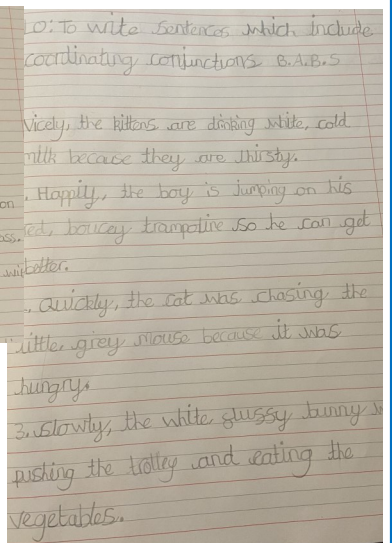 LO: To write sentences which include
coordinating conjunctions B.A.B.S
Nicely, the kittens are drinking white, cold
milk because they are thirsty.
. Happily, the boy is jumping on his
on
red, boucey trampoline so he can get
ass.
better.
. Quickly, the cat was chasing the
little, grey mouse because it was
hungry.
3. Slowly, the white, flussy bunny is
pushing the trolley and eating the
vegetables.